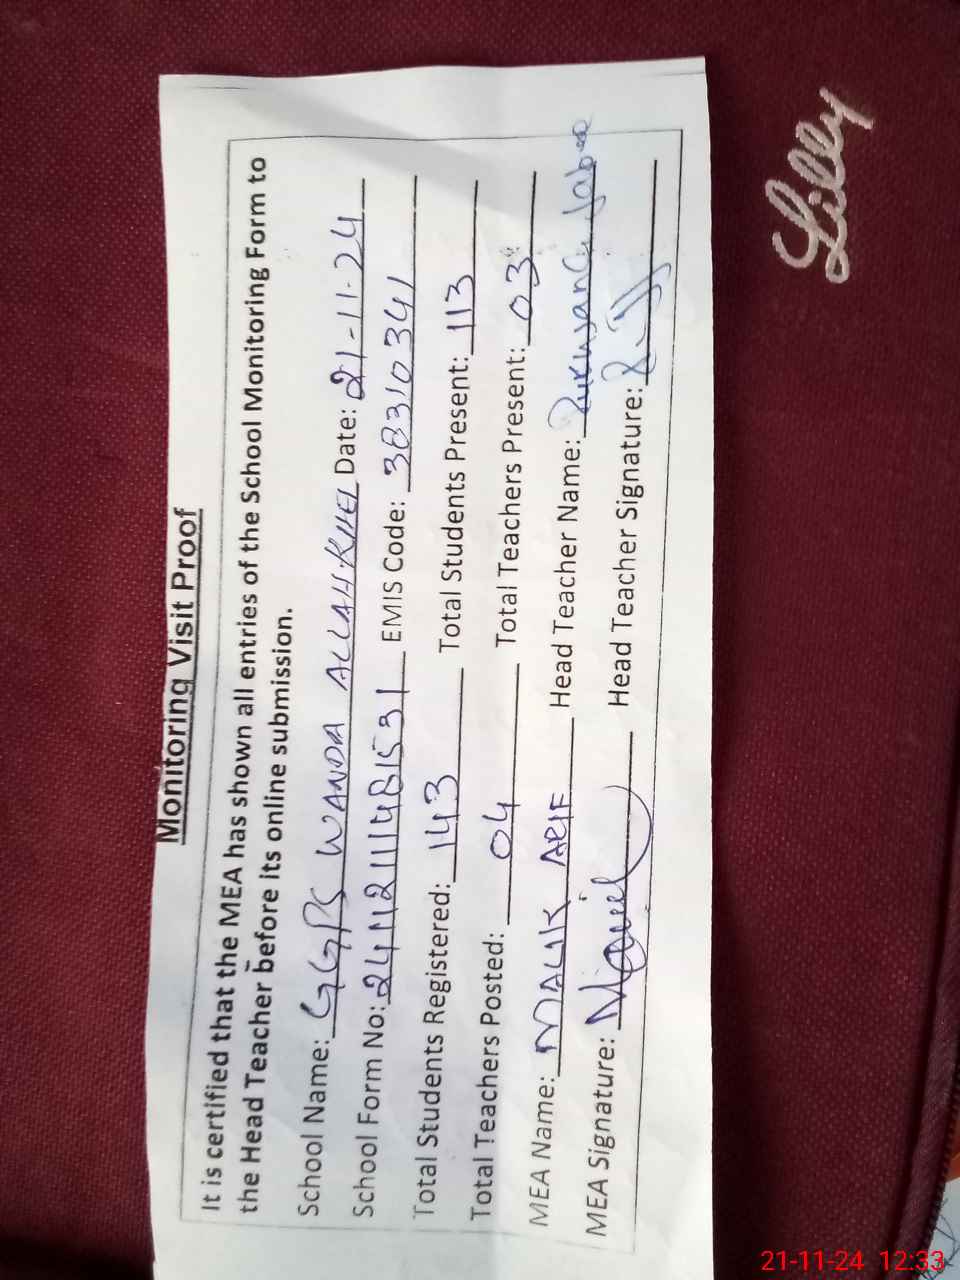 Monitoring Visit Proof
It is certified that the MEA has shown all entries of the School Monitoring Form to
the Head Teacher before its online submission.
School Name: GGPS WANDA ALLAH KHEL Date: 21-11-24
School Form No: 24112111481531 EMIS Code: 38310341
Total Students Registered: 143 Total Students Present: 113
Total Teachers Posted: 04 Total Teachers Present: 03
MEA Name: MALIK ARIF Head Teacher Name:
MEA Signature: Head Teacher Signature:
Lilly
21-11-24 12:33